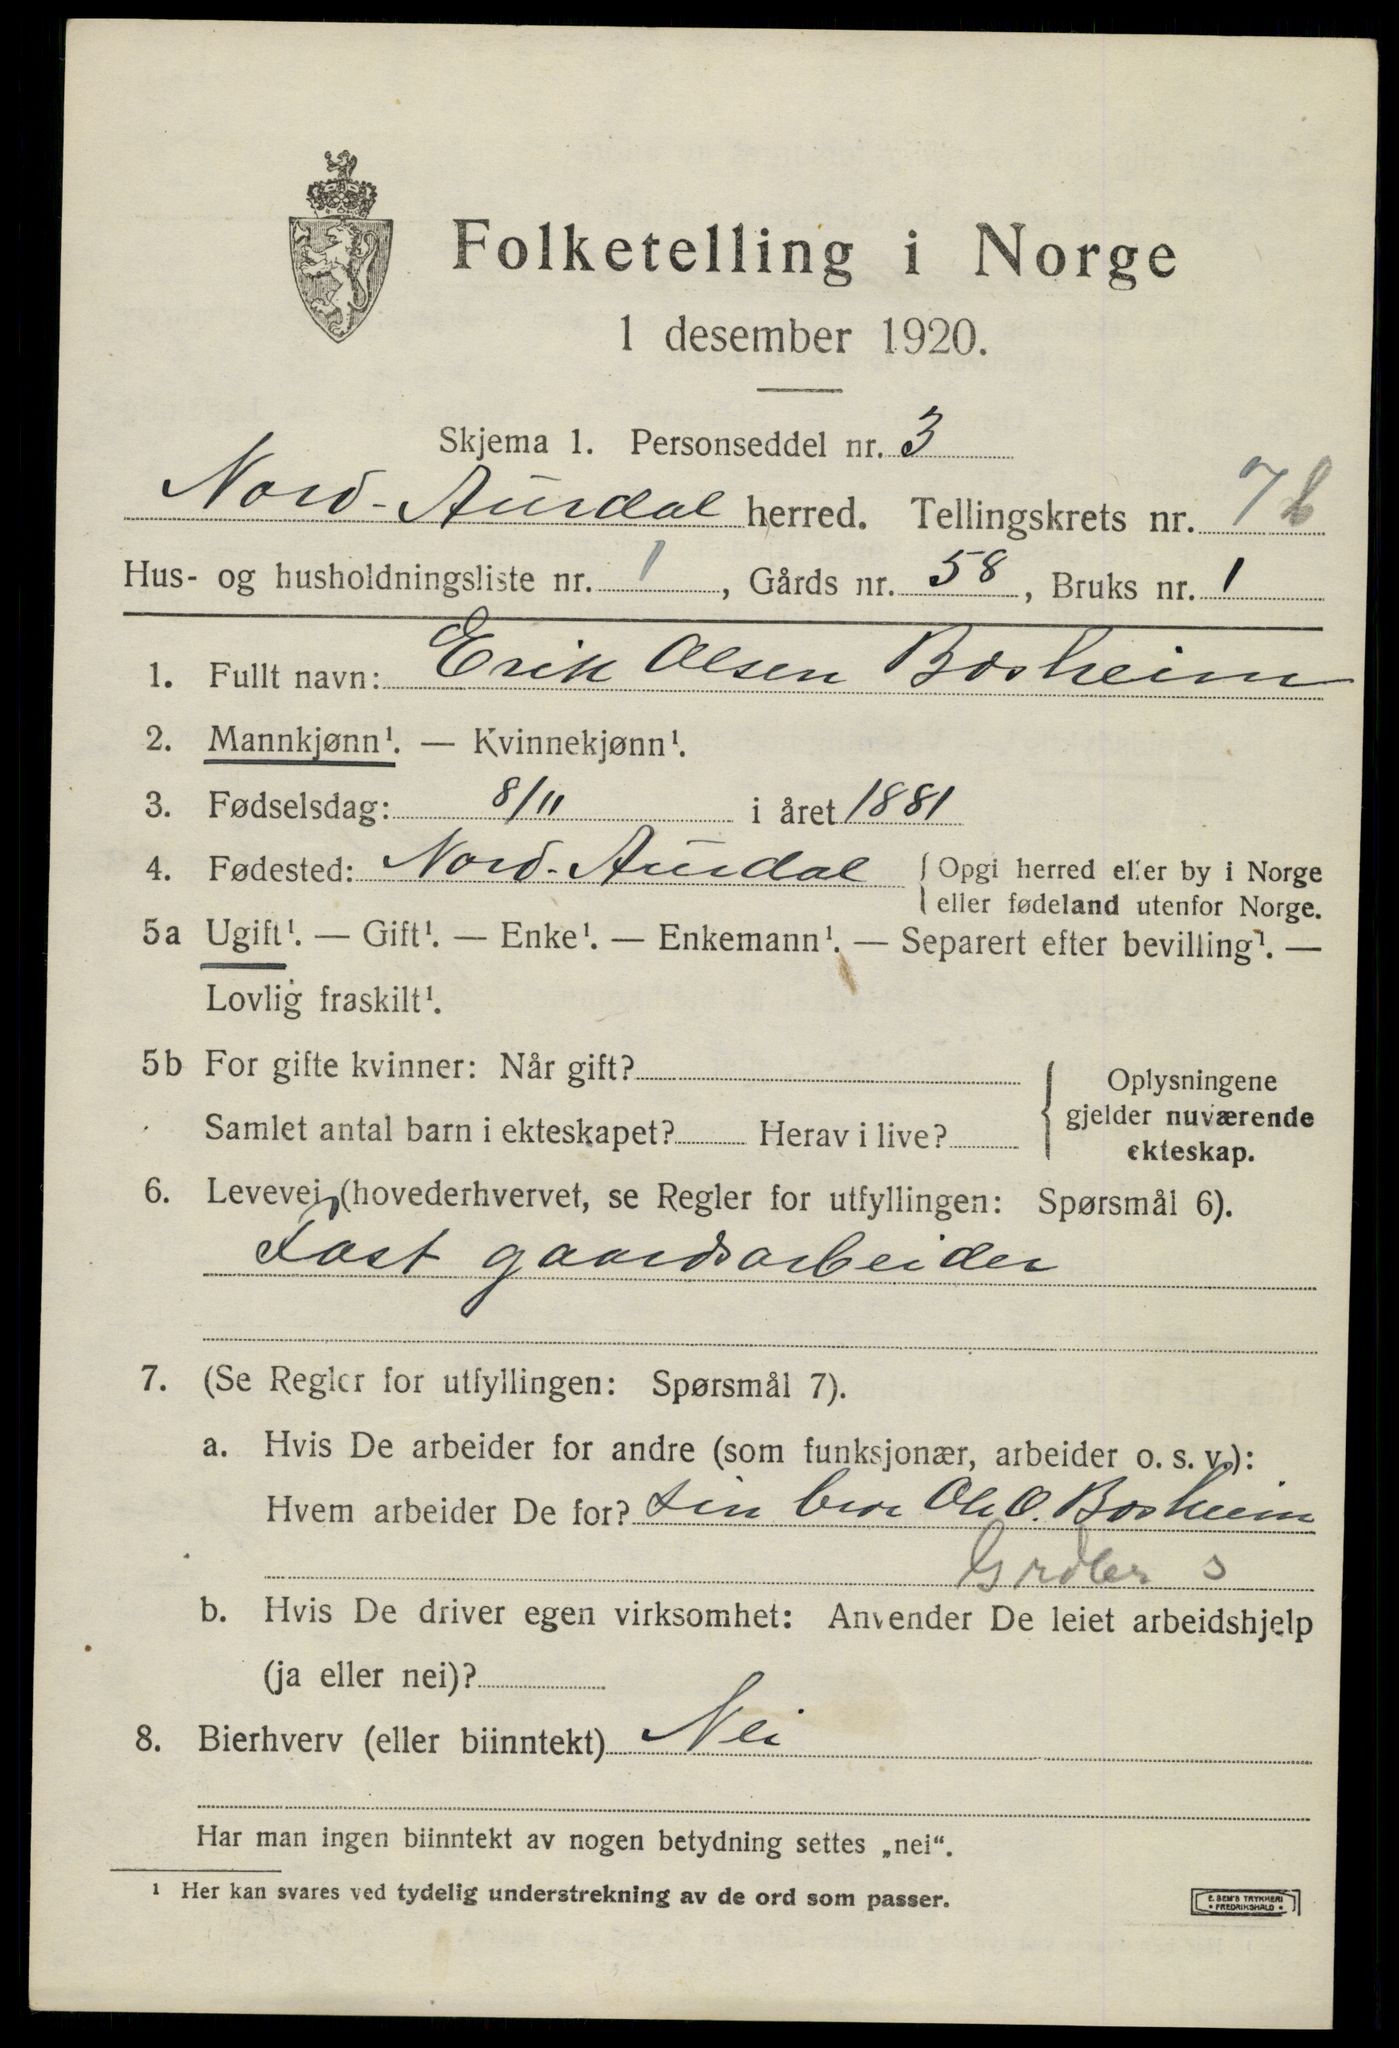 Folketelling i Norge
1 desember 1920.
Skjema 1. Personseddel nr. 3
Nord-Aurdal herred. Tellingskrets nr. 7b
Hus- og husholdningsliste nr. 1, Gårds nr. 58, Bruks nr. 1
1. Fullt navn: Erik Olsen Bosheim
2. Mannkjønn¹. — Kvinnekjønn¹.
3. Fødselsdag: 8/11 i året 1881
4. Fødested: Nord-Aurdal { Opgi herred eller by i Norge
eller fødeland utenfor Norge.
5a Ugift¹. — Gift¹. — Enke¹. — Enkemann¹. — Separert efter bevilling¹. —
Lovlig fraskilt¹.
5b For gifte kvinner: Når gift?
Samlet antal barn i ekteskapet? Herav i live?
{ Oplysningene
gjelder nuværende
ekteskap.
6. Levevei (hovederhvervet, se Regler for utfyllingen: Spørsmål 6).
Fast gaardsarbeider
7. (Se Regler for utfyllingen: Spørsmål 7).
a. Hvis De arbeider for andre (som funksjonær, arbeider o. s. v.):
Hvem arbeider De for? sin bror Ole O. Bosheim
Grdbr s
b. Hvis De driver egen virksomhet: Anvender De leiet arbeidshjelp
(ja eller nei)?
8. Bierhverv (eller biinntekt) Nei
Har man ingen biinntekt av nogen betydning settes „nei“.
¹ Her kan svares ved tydelig understrekning av de ord som passer.
E. SEM'S TRYKKERI
• FREDRIKSHALD •